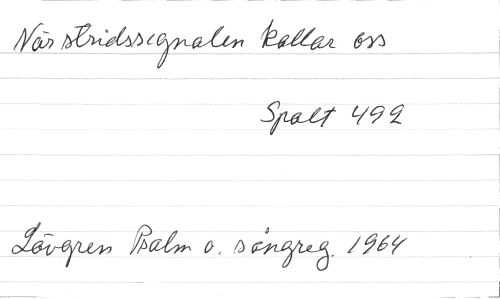 När stridssignalen kallar oss
Spalt 492
Lövgren Psalm o. sångreg. 1964